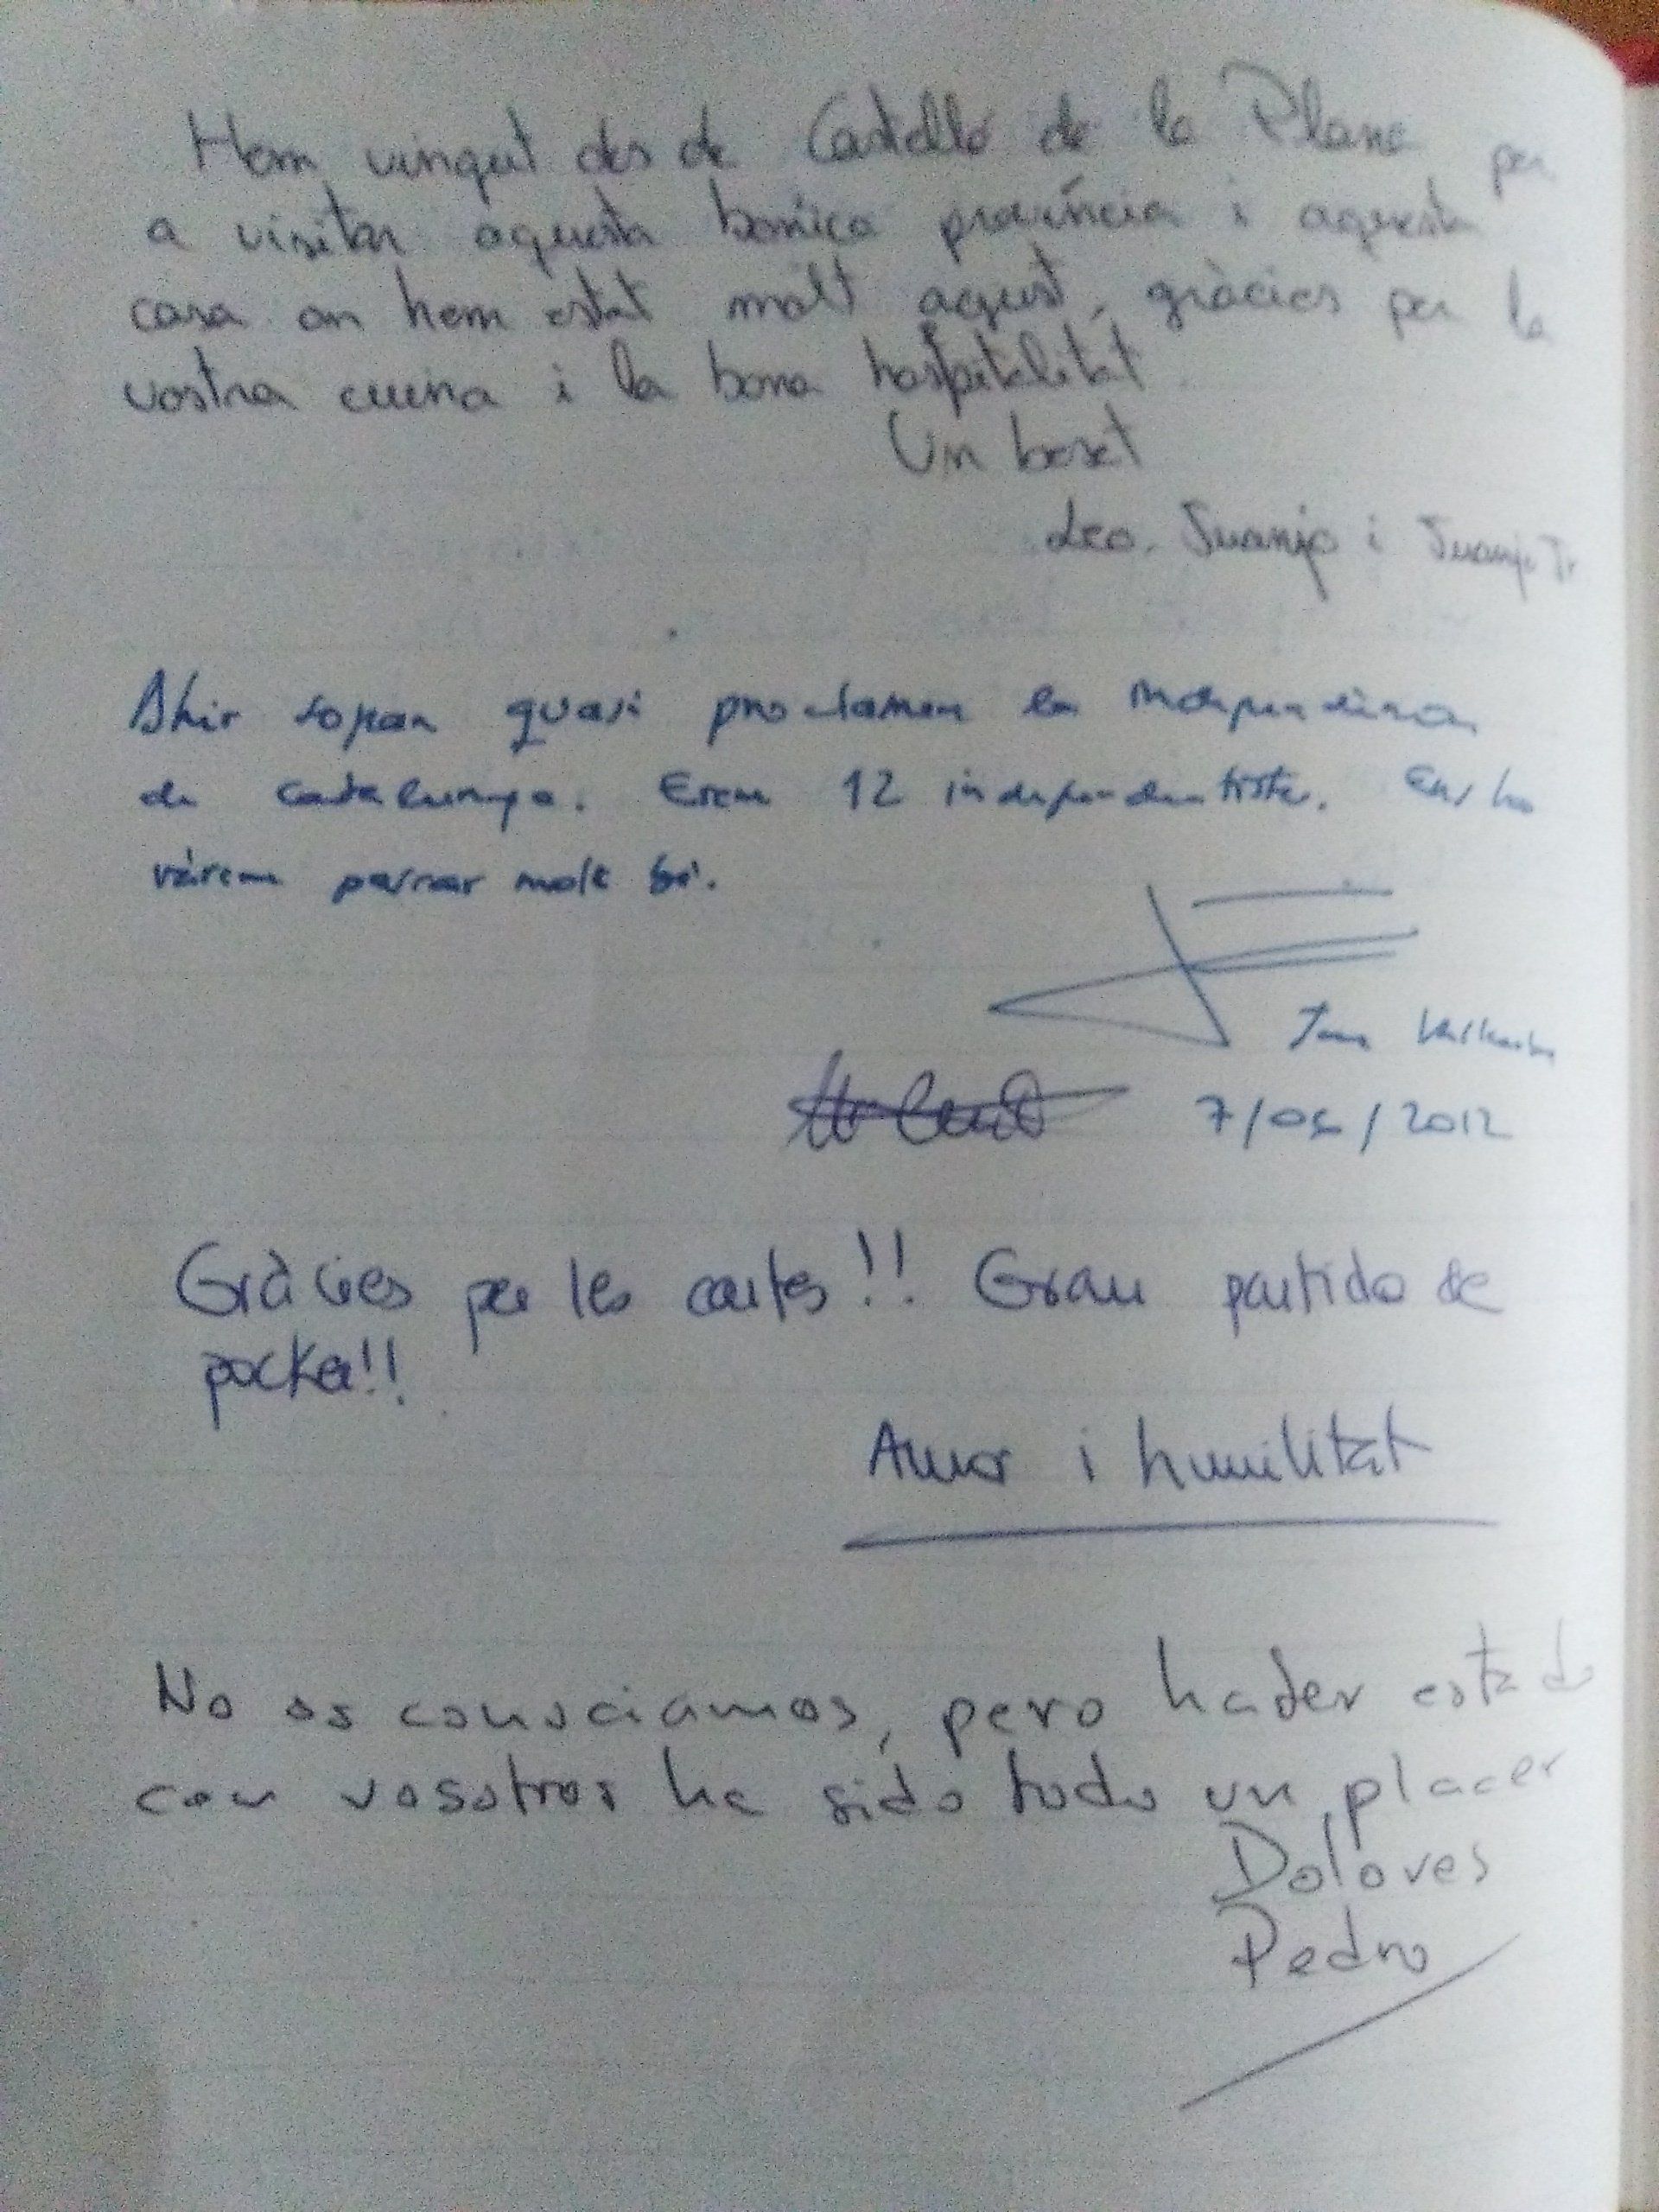 Hem vingut des de Castelló de la Plana per
a visitar aquesta bonica província i aquesta
casa on hem estat molt agust, gràcies per la
vostra cuina i la bona hospitalitat
Un beset
Leo, Juanjo i Juanjo Jr
Ahir sopan quasi proclamen la independència
de Catalunya. Erem 12 independentistes. Ens ho
vàrem passar molt bé.
7/06/2012
Gràcies per les cartes!! Gran partido de
pocker!!
Amor i humilitat
No os conociamos, pero haber estado
con vosotros ha sido todo un placer
Dolores
Pedro